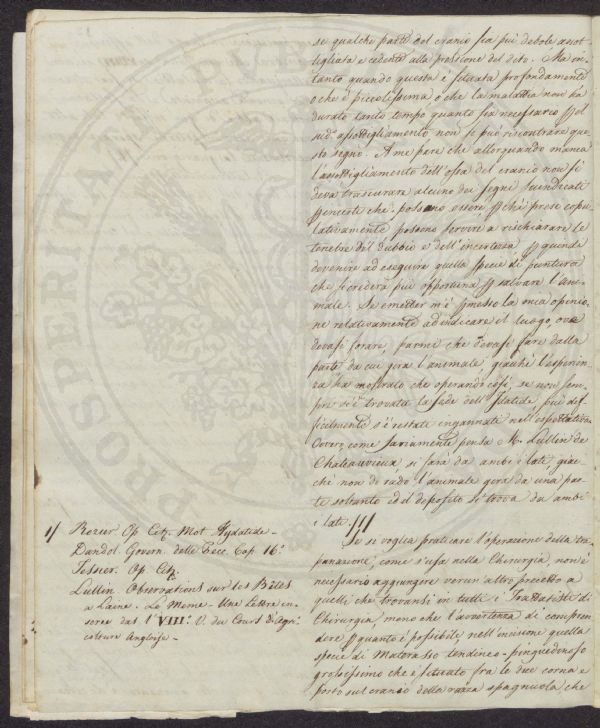 se qualche parte del cranio sia più debole assot-
tigliata e cedente alla pressione del dito. Ma in-
tanto quando questa è situata profondamente
o che è piccolissima, o che la malattia non ha
durato tanto tempo quanto sia necessario pel
sud. assottigliamento non si può riscontrare que-
sto segno. A me pare che allorquando manca
l'assottigliamento dell'ossa del cranio non si
deva trascurare alcuno dei segni suindicati
che possano essere, prese copu-
lativamente possono servire a rischiarare le
tenebre del dubbio e dell'incertezza quindi
devenire ad eseguire quella specie di puntura
che si crederà più opportuna salvare l'ani-
male. Se emetter m'è permesso la mia opinio-
ne relativamente ad indicare il luogo, ove
devasi forare, parmi che devasi fare dalla
parte da cui gira l'animale, giacchè l'esperien-
za ha mostrato che operando così, se non sem-
pre si è trovata la sede dell'Idatide, più dif-
ficilmente s'è restati ingannati nell'espettativa.
Ovvero come saviamente pensa M. Lullin de
Chateauvieux si farà da ambi i lati, giac-
chè non di rado l'animale gira da una par-
te soltanto ed il deposito si trova da ambi
i lati.
Se si voglia praticare l'operazione della tra-
panazione, come s'usa nella Chirurgia, non è
necessario aggiungere verun altro precetto a
quelli che trovansi in tutti i Trattatisti di
Chirurgia, meno che l'avvertenza di compren-
dere quanto è possibile nell'incisione quella
specie di Materasso tendineo-pinguedinoso
grossissimo che è situato fra le due corna e
posto sul cranio della razza spagnuola che
1/ Rozier Op. Cit. Mot. Hydatide -
Dandol. Govern. delle Pece. Cap. 16.
Tessier. Op. Cit.
Lullin Observations sur les Bêtes
a Laine. Le Meme. Une Lettre in-
seree das l'VIII. V. du Cours d'Agri-
colture Angloise -